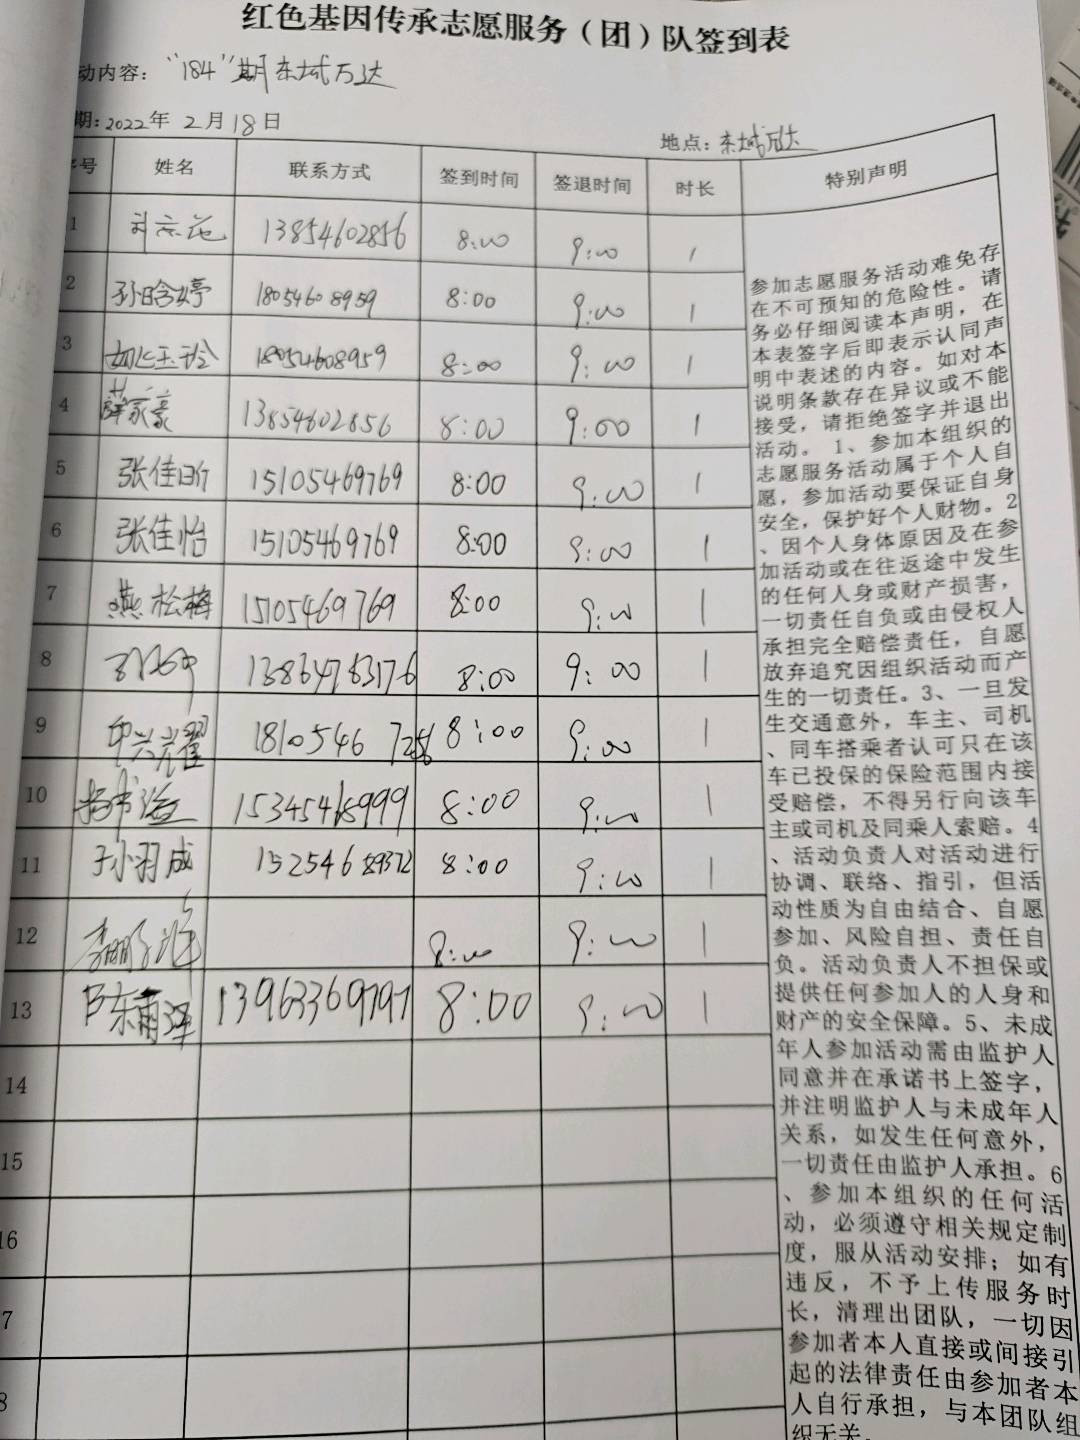 红色基因传承志愿服务（团）队签到表
动内容："184"期东城万达
期：2022年 2月18日
地点：东城万达
序号 姓名 联系方式 签到时间 签退时间 时长 特别声明
1 13854602856 8:00 9:00 1
2 孙晗婷 18054608959 8:00 9:00 1
3 18054608959 8:00 9:00 1
4 薛家豪 13854602856 8:00 9:00 1
5 张佳昕 15105469769 8:00 9:00 1
6 张佳怡 15105469769 8:00 9:00 1
7 燕松梅 15105469769 8:00 9:00 1
8 8:00 9:00 1
9 8:00 9:00 1
10 8:00 9:00 1
11 8:00 9:00 1
12 8:00 9:00 1
13 陈雨泽 8:00 9:00 1
14
15
16
7
8
参加志愿服务活动难免存
在不可预知的危险性。请
务必仔细阅读本声明，在
本表签字后即表示认同声
明中表述的内容。如对本
说明条款存在异议或不能
接受，请拒绝签字并退出
活动。1、参加本组织的
志愿服务活动属于个人自
愿，参加活动要保证自身
安全，保护好个人财物。2
、因个人身体原因及在参
加活动或在往返途中发生
的任何人身或财产损害，
一切责任自负或由侵权人
承担完全赔偿责任，自愿
放弃追究因组织活动而产
生的一切责任。3、一旦发
生交通意外，车主、司机
、同车搭乘者认可只在该
车已投保的保险范围内接
受赔偿，不得另行向该车
主或司机及同乘人索赔。4
、活动负责人对活动进行
协调、联络、指引，但活
动性质为自由结合、自愿
参加、风险自担、责任自
负。活动负责人不担保或
提供任何参加人的人身和
财产的安全保障。5、未成
年人参加活动需由监护人
同意并在承诺书上签字，
并注明监护人与未成年人
关系，如发生任何意外，
一切责任由监护人承担。6
、参加本组织的任何活
动，必须遵守相关规定制
度，服从活动安排；如有
违反，不予上传服务时
长，清理出团队，一切因
参加者本人直接或间接引
起的法律责任由参加者本
人自行承担，与本团队组
织无关。